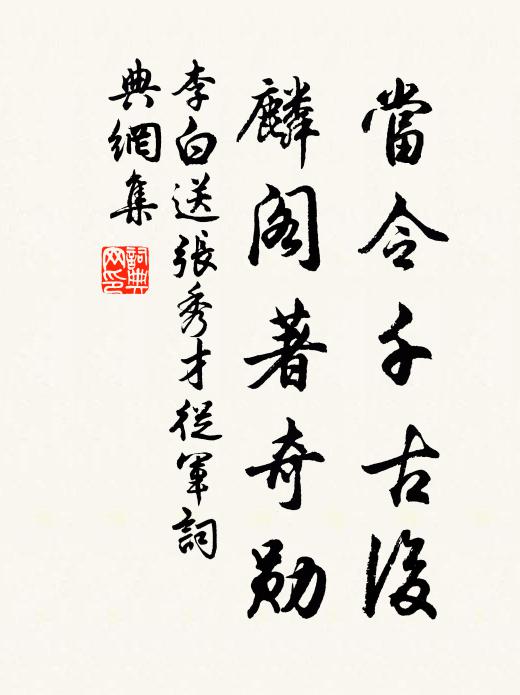 當令千古後
麟閣著奇勛
李白送張秀才從軍詞
典網集
詞典
网印